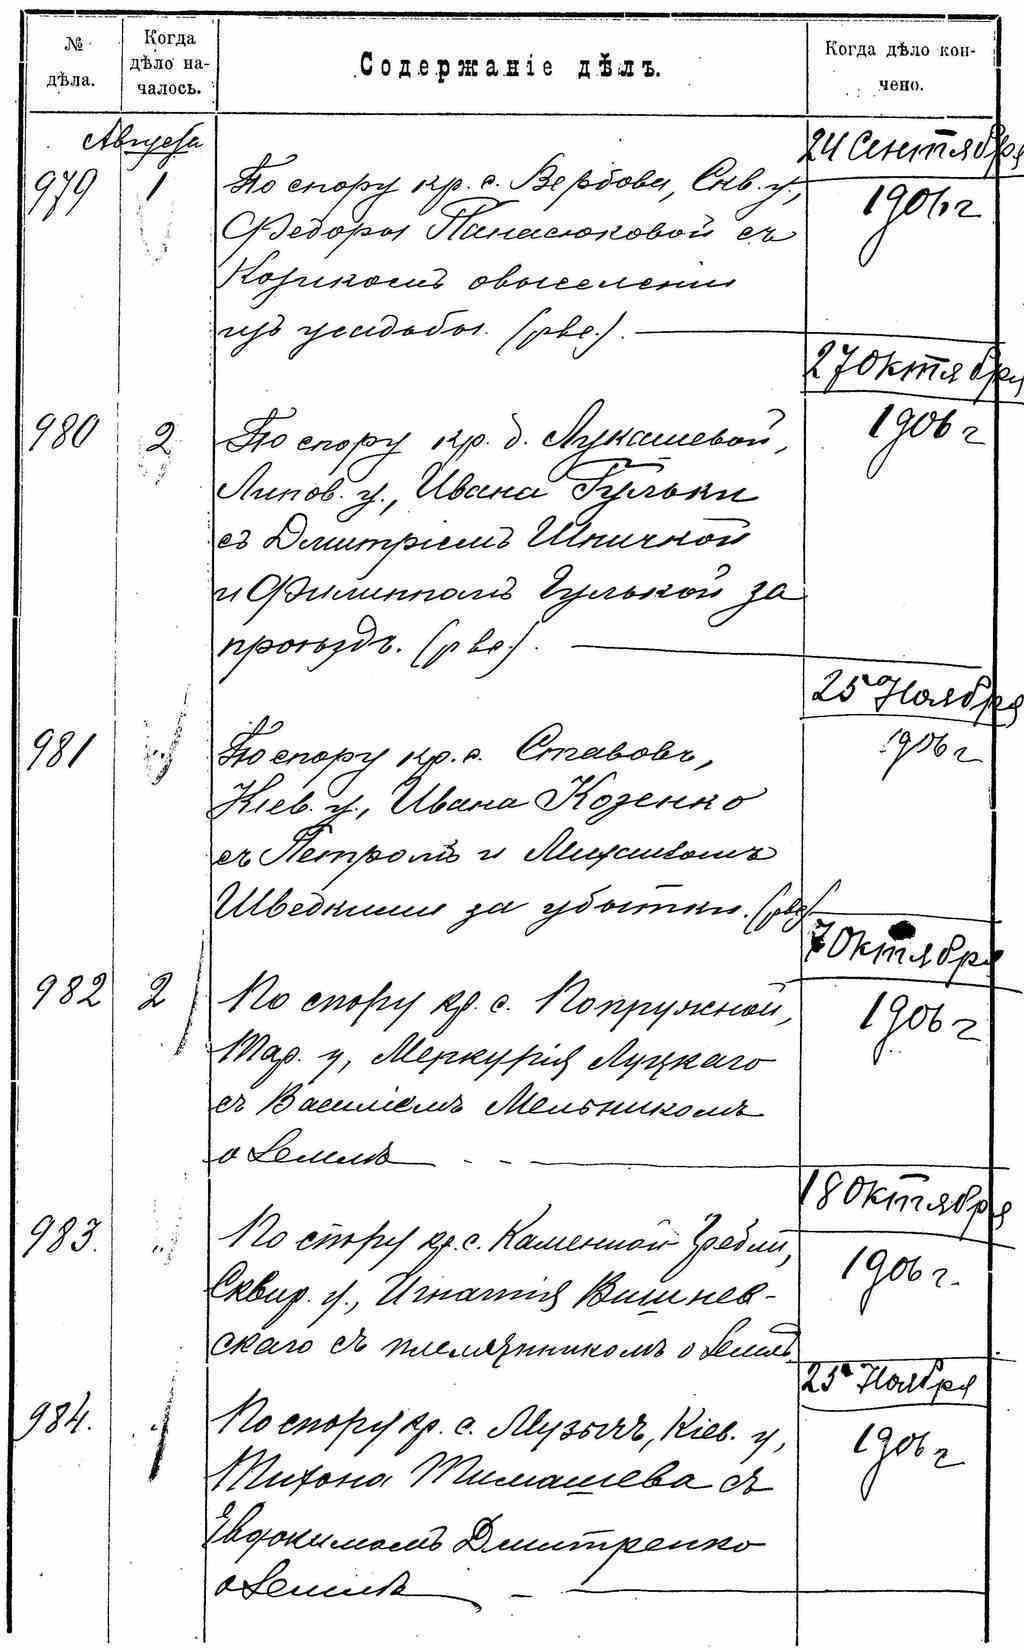 № дѣла.
Когда дѣло началось.
Содержаніе дѣлъ.
Когда дѣло кончено.
Августа
24 Сентября
979 1 По спору кр. с. Вербова, Скв. у.,
1906 г
Федоры Панасюковой съ
Козикомъ о выселении
изъ усадьбы. (рве.).
27 Октября
980 2 По спору кр. д. Лукашевой,
1906 г
Липов. у., Ивана Гульки
съ Дмитріемъ Шпичкой
и Филиппомъ Гулькой за
проѣздъ. (рве.).
25 Ноября
981 По спору кр. с. Ставовъ,
1906 г
Кіев. у., Ивана Козенко
съ Петромъ и Михаиломъ
Шведкими за убытки. (рве)
7 Октября
982 2 По спору кр. с. Попружной,
1906 г
Тар. у., Меркурія Луцкаго
съ Василіемъ Мельникомъ
о землѣ
18 Октября
983. По спору кр. с. Каменной Гребли,
1906 г.
Сквир. у., Игнатія Вишнев-
скаго съ племянникомъ о землѣ
25 Ноября
984. По спору кр. с. Музычъ, Кіев. у,
1906 г
Тихона Тимашева съ
Евдокимомъ Дмитренко
о землѣ